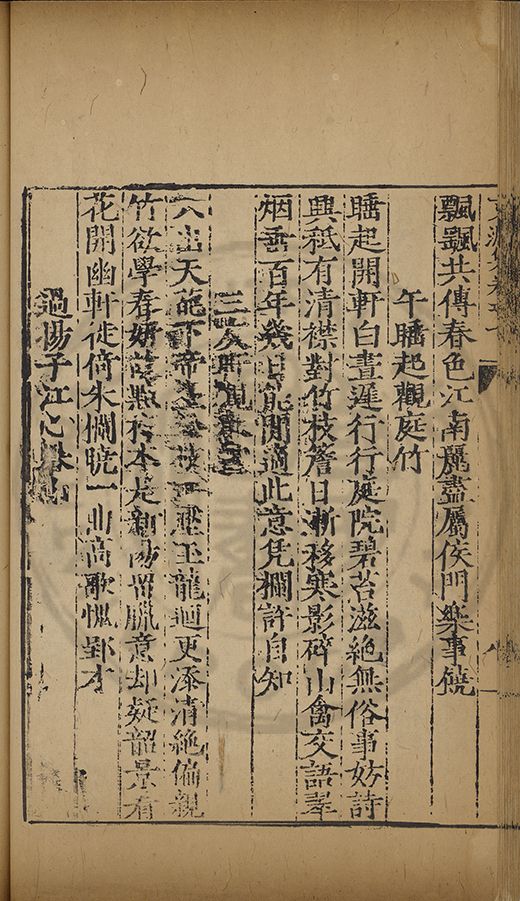 飄飄共傳春色江南麗盡屬侯門樂事饒
午睡起觀庭竹
睡起開軒白晝遲行行庭院碧苔滋絕無俗事妨詩
興秖有清襟對竹枝簷日漸移寒影碎山禽交語翠
烟垂百年幾日能閒適此意凭欄許自知
三人
六出天 下帝 玉龍迴更添清絕偏親
竹欲學春妍 點 本是新陽習臘意却疑韶景看
花開幽軒徙倚朱欄曉一曲高歌愧郢才
過揚子江心